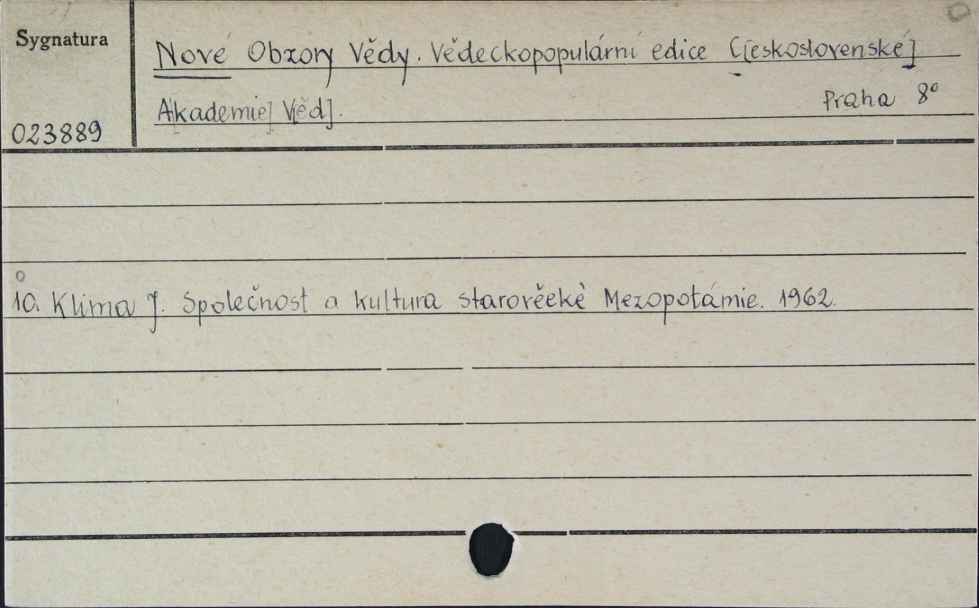 Sygnatura
Nové Obzory Vědy. Vědeckopopulární edice Č[eskoslovenské]
Akademie] Věd].
Praha 8°
023889
10. Klima J. Společnost a kultura starověeké Mezopotámie. 1962.